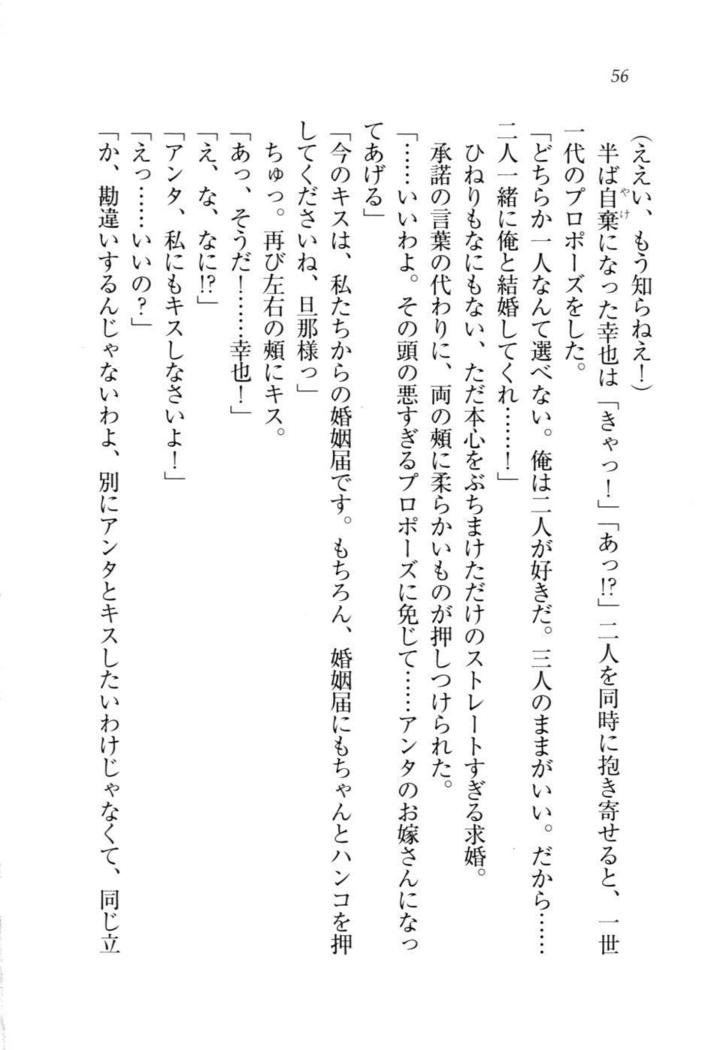 56
（ええい、もう知らねえ！）
　半ば自棄になった幸也は「きゃっ！」「あっ!?」二人を同時に抱き寄せると、一世
一代のプロポーズをした。
「どちらか一人なんて選べない。俺は二人が好きだ。三人のままがいい。だから……
二人一緒に俺と結婚してくれ……！」
　ひねりもなにもない、ただ本心をぶちまけただけのストレートすぎる求婚。
　承諾の言葉の代わりに、両の頰に柔らかいものが押しつけられた。
「……いいわよ。その頭の悪すぎるプロポーズに免じて……アンタのお嫁さんになっ
てあげる」
「今のキスは、私たちからの婚姻届です。もちろん、婚姻届にもちゃんとハンコを押
してくださいね、旦那様っ」
　ちゅっ。再び左右の頰にキス。
「あっ、そうだ！……幸也！」
「え、な、なに!?」
「アンタ、私にもキスしなさいよ！」
「えっ……いいの？」
「か、勘違いするんじゃないわよ、別にアンタとキスしたいわけじゃなくて、同じ立